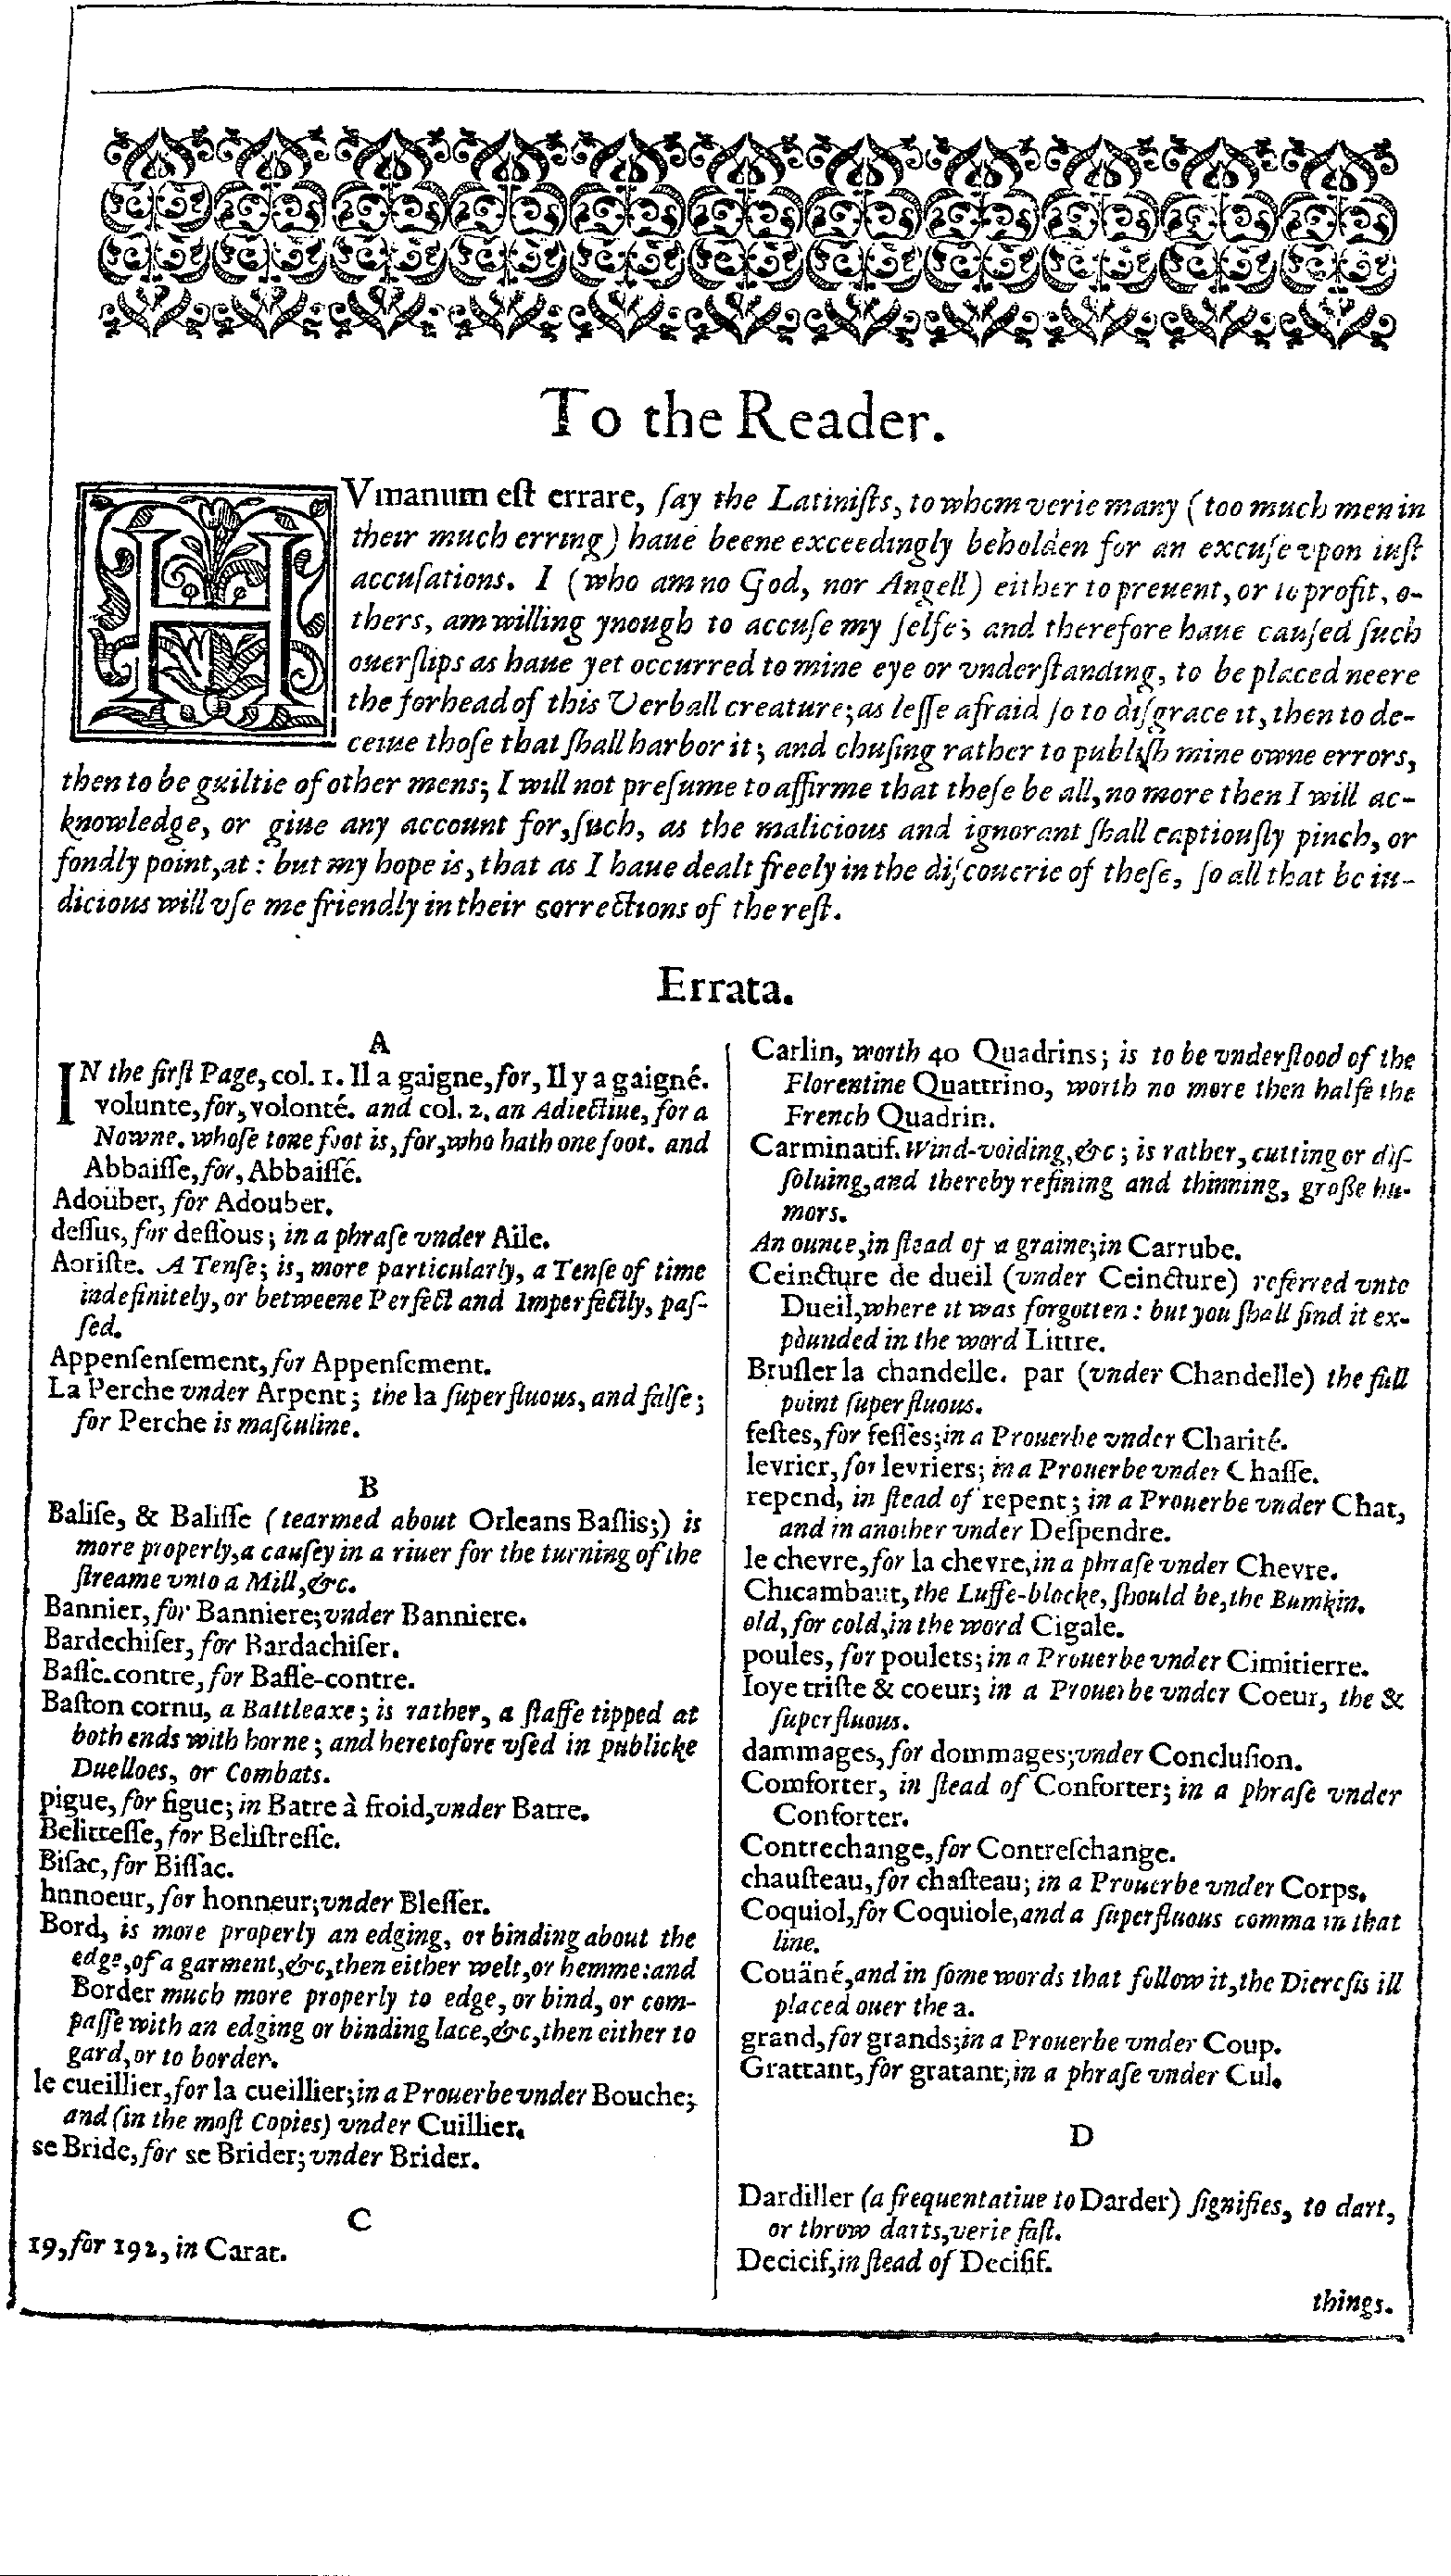 To the Reader.
HVmanum eſt errare, ſay the Latiniſts, to whom verie many (too much men in
their much erring) haue beene exceedingly beholden for an excuſe vpon iuſt
accuſations. I (who am no God, nor Angell) either to preuent, or to profit, o-
thers, am willing ynough to accuſe my ſelfe; and therefore haue cauſed ſuch
ouerſlips as haue yet occurred to mine eye or vnderſtanding, to be placed neere
the forhead of this Verball creature; as leſſe afraid ſo to diſgrace it, then to de-
ceiue thoſe that ſhall harbor it; and chuſing rather to publiſh mine owne errors,
then to be guiltie of other mens; I will not preſume to affirme that theſe be all, no more then I will ac-
knowledge, or giue any account for, ſuch, as the malicious and ignorant ſhall captiouſly pinch, or
fondly point, at: but my hope is, that as I haue dealt freely in the diſcouerie of theſe, ſo all that be iu-
dicious will vſe me friendly in their corrections of the reſt.
Errata.
A
IN the firſt Page, col. 1. Il a gaigne, for, Il y a gaigné.
volunte, for, volonté. and col. 2. an Adiectiue, for a
Nowne. whoſe tone foot is, for, who hath one foot. and
Abbaiſſe, for, Abbaiſſé.
Adoüber, for Adouber.
deſſus, for deſſous; in a phraſe vnder Aile.
Aoriſte. A Tenſe; is, more particularly, a Tenſe of time
indefinitely, or betweene Perfect and Imperfectly, paſ-
ſed.
Appenſenſement, for Appenſement.
La Perche vnder Arpent; the la ſuperfluous, and falſe;
for Perche is maſculine.
B
Baliſe, & Baliſſe (tearmed about Orleans Baſlis;) is
more properly, a cauſey in a riuer for the turning of the
ſtreame vnto a Mill, &c.
Bannier, for Banniere; vnder Banniere.
Bardechiſer, for Bardachiſer.
Baſſe.contre, for Baſſe-contre.
Baſton cornu, a Battleaxe; is rather, a ſtaffe tipped at
both ends with horne; and heretofore vſed in publicke
Duelloes, or Combats.
pigue, for figue; in Batre à froid, vnder Batre.
Belitreſſe, for Beliſtreſſe.
Biſac, for Biſſac.
hnnoeur, for honneur; vnder Bleſſer.
Bord, is more properly an edging, or binding about the
edge, of a garment, &c, then either welt, or hemme: and
Border much more properly to edge, or bind, or com-
paſſe with an edging or binding lace, &c, then either to
gard, or to border.
le cueillier, for la cueillier; in a Prouerbe vnder Bouche;
and (in the moſt Copies) vnder Cuillier.
se Bride, for se Brider; vnder Brider.
C
19, for 192, in Carat.
Carlin, worth 40 Quadrins; is to be vnderſtood of the
Florentine Quattrino, worth no more then halfe the
French Quadrin.
Carminatif. Wind-voiding, &c; is rather, cutting or diſ-
ſoluing, and thereby refining and thinning, groſſe hu-
mors.
An ounce, in ſtead of a graine; in Carrube.
Ceincture de dueil (vnder Ceincture) referred vnto
Dueil, where it was forgotten: but you ſhall find it ex-
pounded in the word Littre.
Bruſler la chandelle. par (vnder Chandelle) the full
point ſuperfluous.
feſtes, for feſſes; in a Prouerbe vnder Charité.
levrier, for levriers; in a Prouerbe vnder Chaſſe.
repend, in ſtead of repent; in a Prouerbe vnder Chat,
and in another vnder Deſpendre.
le chevre, for la chevre, in a phraſe vnder Chevre.
Chicambaut, the Luffe-blocke, ſhould be, the Bumkin.
old, for cold, in the word Cigale.
poules, for poulets; in a Prouerbe vnder Cimitierre.
Ioye triſte & coeur; in a Prouerbe vnder Coeur, the &
ſuperfluous.
dammages, for dommages; vnder Concluſion.
Comforter, in ſtead of Conforter; in a phraſe vnder
Conforter.
Contrechange, for Contreſchange.
chauſteau, for chaſteau; in a Prouerbe vnder Corps.
Coquiol, for Coquiole, and a ſuperfluous comma in that
line.
Couäné, and in ſome words that follow it, the Diereſis ill
placed ouer the a.
grand, for grands; in a Prouerbe vnder Coup.
Grattant, for gratant; in a phraſe vnder Cul.
D
Dardiller (a frequentatiue to Darder) ſignifies, to dart,
or throw darts, verie faſt.
Decicif, in ſtead of Deciſif.
things.